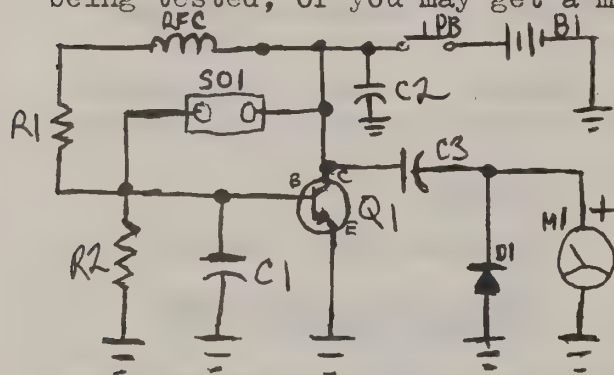 being tested, or you may get a m
RFC
PB
B1
SO1
C2
R1
C3
B
C
Q1
E
M1
+
R2
C1
D1